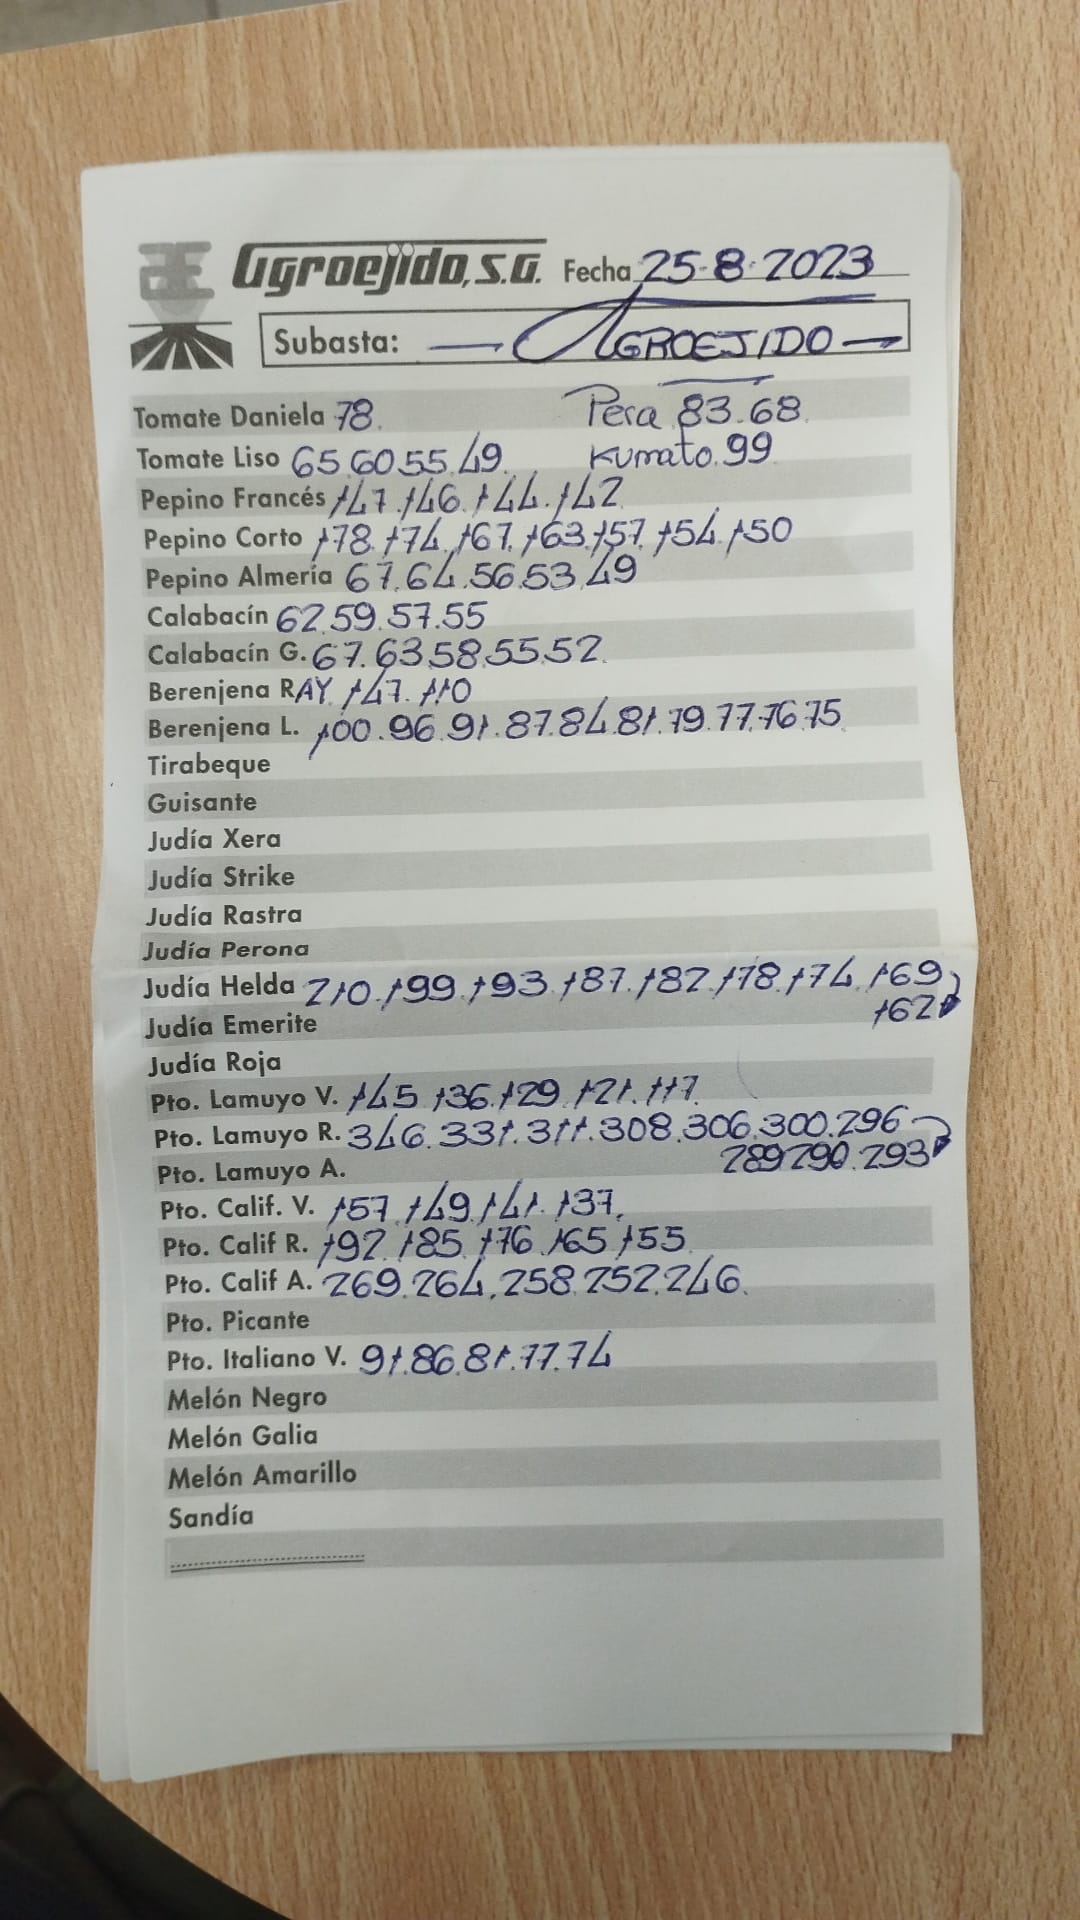 Agroejido, S.A. Fecha 25-8-2023
Subasta: — AGROEJIDO —
Tomate Daniela 78. Pera 83.68.
Tomate Liso 65.60.55.49. Kumato.99
Pepino Francés 147.146.144.142
Pepino Corto 178.174.167.163.157.154.150
Pepino Almería 67.64.56.53.49
Calabacín 62.59.57.55
Calabacín G. 67.63.58.55.52.
Berenjena RAY 147.110
Berenjena L. 100.96.91.87.84.81.79.77.76.75
Tirabeque
Guisante
Judía Xera
Judía Strike
Judía Rastra
Judía Perona
Judía Helda 210.199.193.187.182.178.174.169
162
Judía Emerite
Judía Roja
Pto. Lamuyo V. 145.136.129.121.117.
Pto. Lamuyo R. 346.331.311.308.306.300.296
289.290.293
Pto. Lamuyo A.
Pto. Calif. V. 157.149.141.137.
Pto. Calif R. 192.185.176.165.155
Pto. Calif A. 269.264.258.252.246.
Pto. Picante
Pto. Italiano V. 91.86.81.77.74
Melón Negro
Melón Galia
Melón Amarillo
Sandía